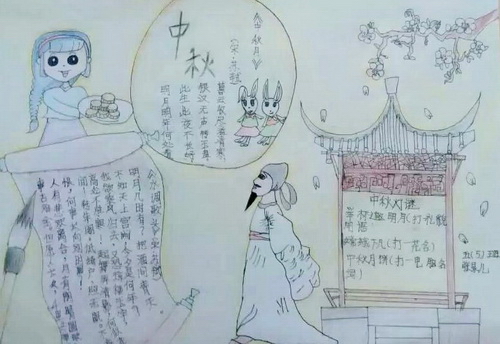 中秋
《中秋月》
(宋·苏轼)
暮云收尽溢清寒
银汉无声转玉盘
此生此夜不长好
明月明年何处看
明月几时有？把酒问青天。
不知天上宫阙，今夕是何年？
我欲乘风归去，又恐琼楼玉宇，
高处不胜寒，起舞弄清影，何似在人
间。转朱阁，低绮户，照无眠。不应有
恨，何事长向别时圆？
人有悲欢离合，月有阴晴圆缺
中秋灯谜
举杯邀明月(打一礼貌
用语
嫦娥下凡(打一花名)
中秋月饼(打一电脑名
五(5)班